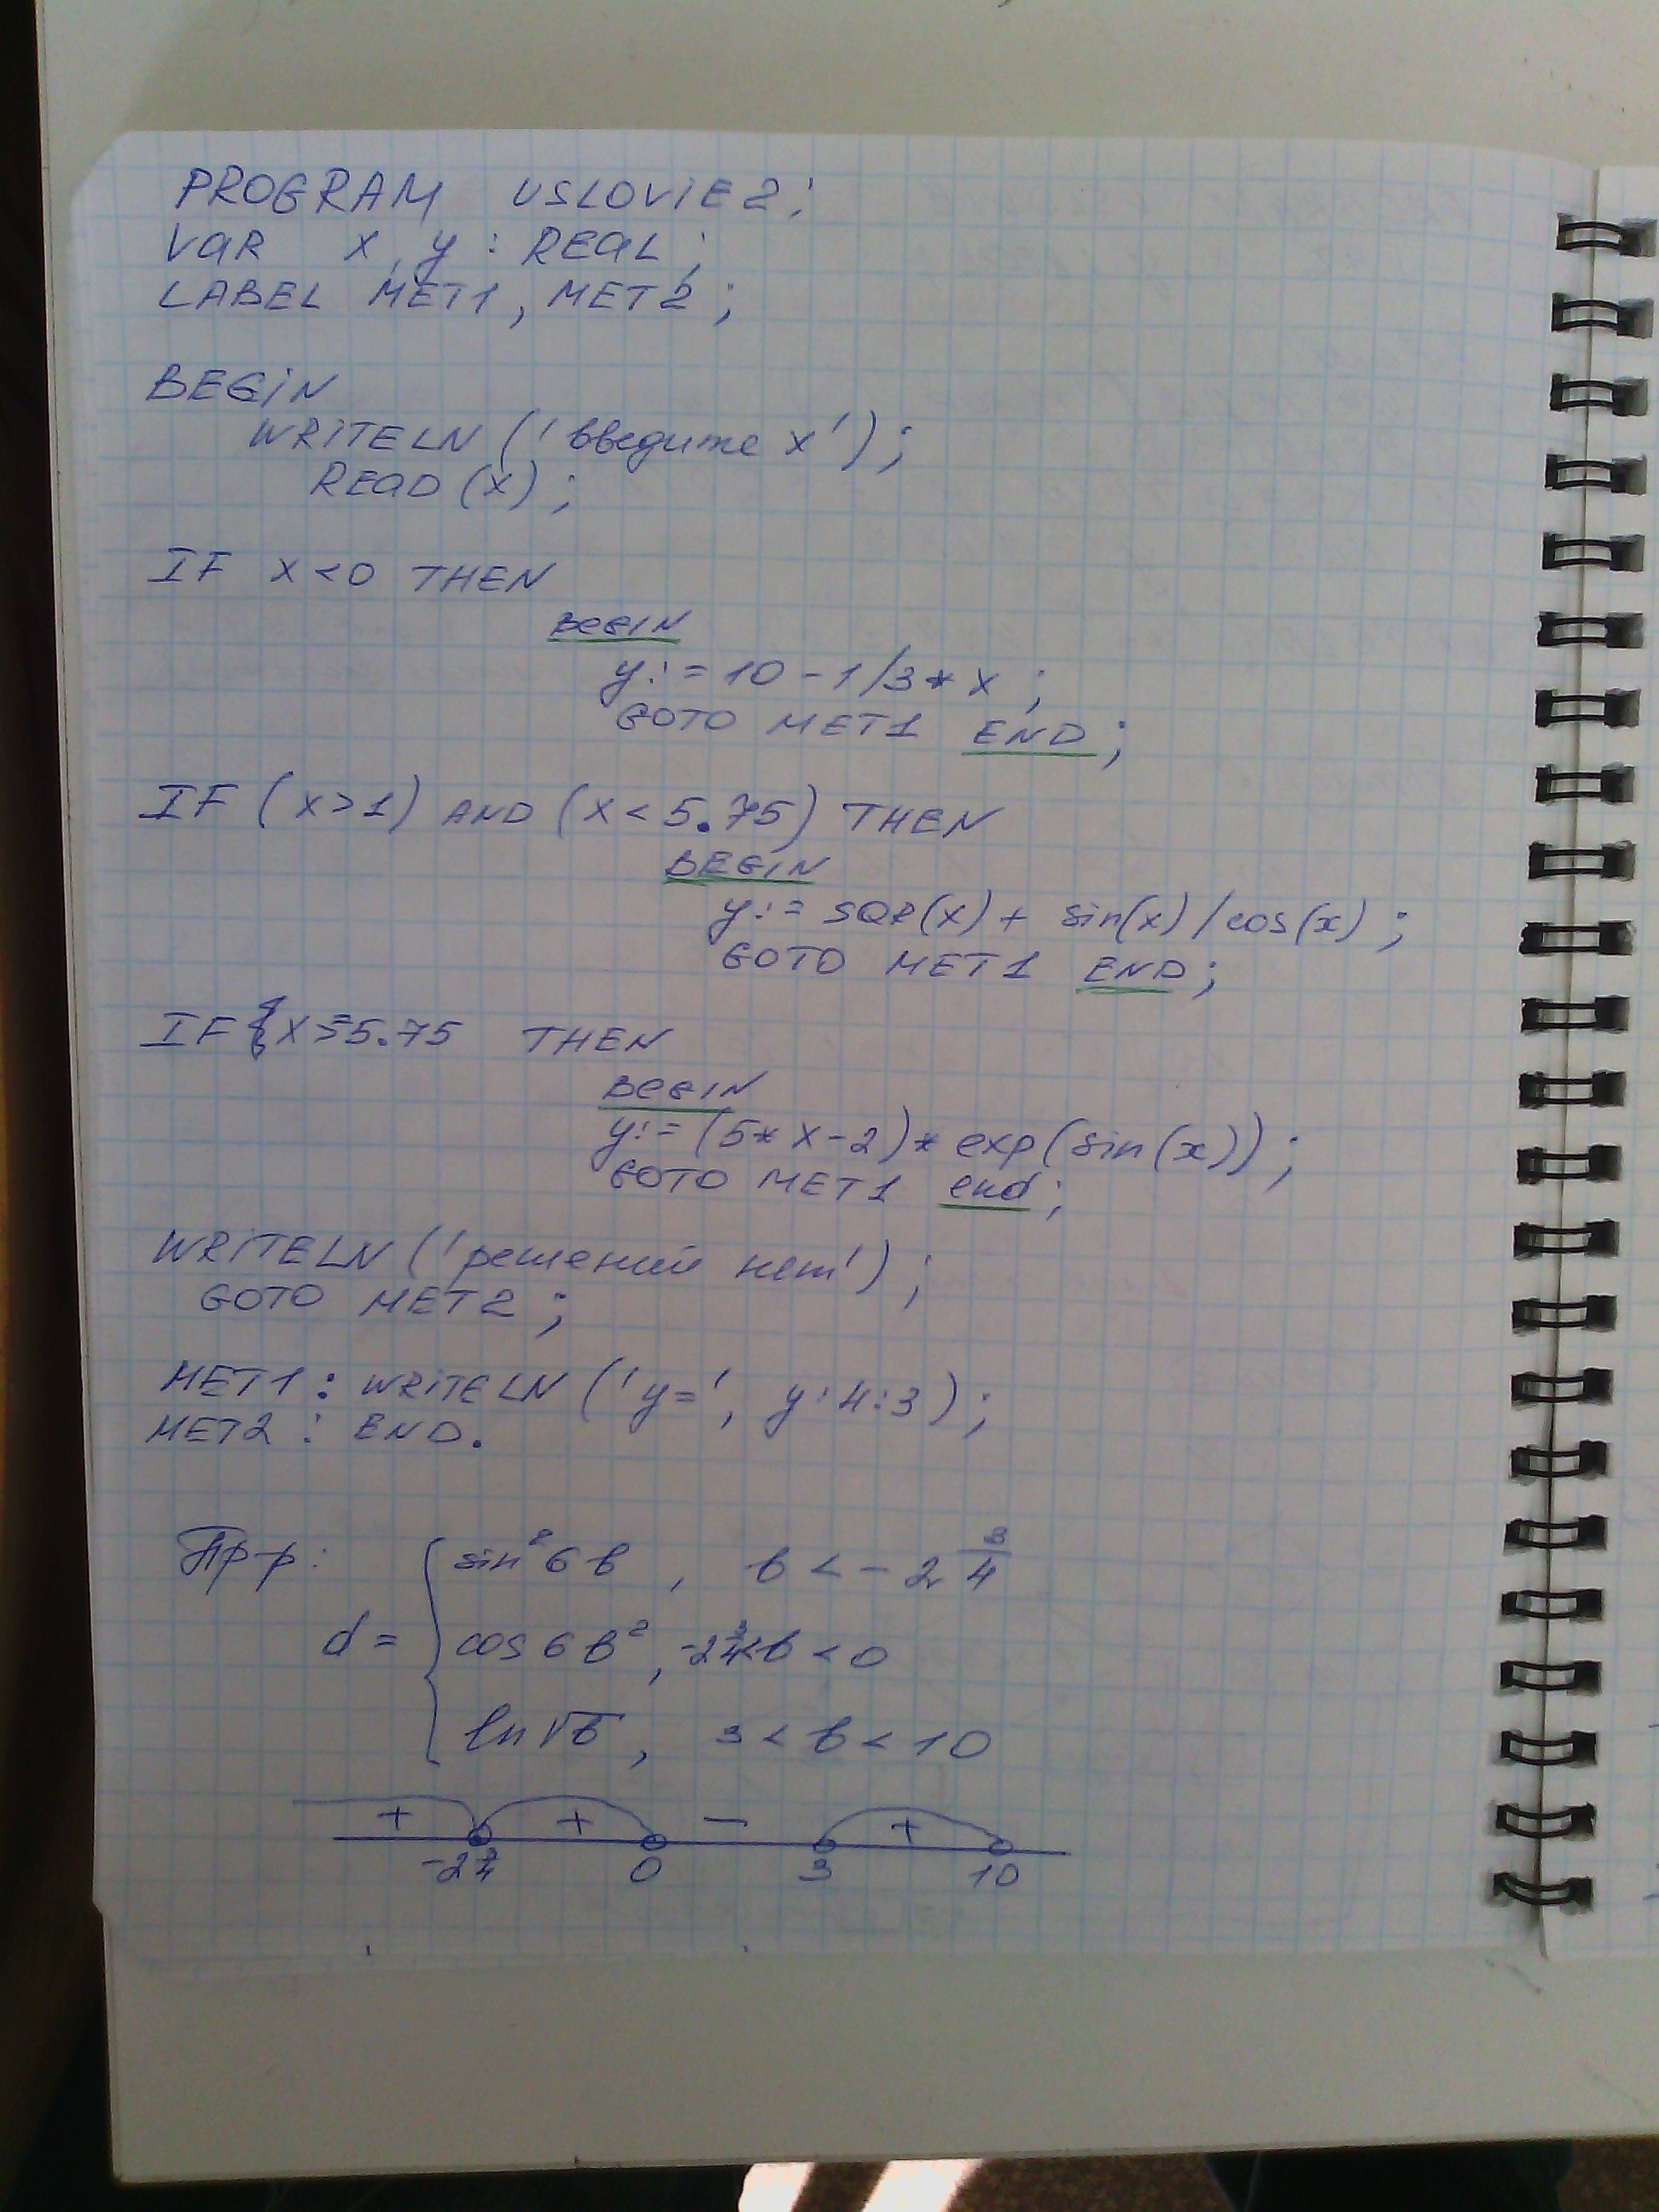 PROGRAM USLOVIE2;
VAR x, y : REAL;
LABEL MET1, MET2;
BEGIN
WRITELN ('введите x');
READ (x);
IF x<0 THEN
BEGIN
y:=10-1/3*x;
GOTO MET1 END;
IF (x>1) AND (x<5.75) THEN
BEGIN
y:=SQR(x)+ sin(x)/cos(x);
GOTO MET1 END;
IF x>=5.75 THEN
BEGIN
y:=(5*x-2)*exp(sin(x));
GOTO MET1 end;
WRITELN ('решений нет');
GOTO MET2;
MET1: WRITELN ('y=', y:4:3);
MET2: END.
Пр-р:
sin²6b, b<-2 3/4
d= cos6b², -2 3/4<b<0
ln√b, 3<b<10
+ + - +
-2 3/4 0 3 10